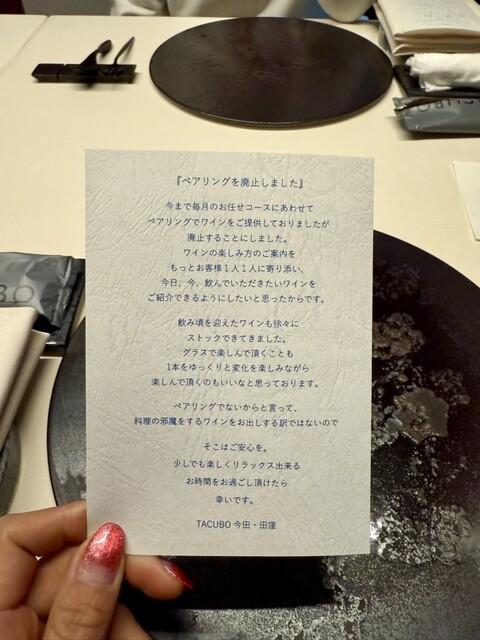 『ペアリングを廃止しました』
今まで毎月のお任せコースにあわせて
ペアリングでワインをご提供しておりましたが
廃止することにしました。
ワインの楽しみ方のご案内を
もっとお客様1人1人に寄り添い、
今日、今、飲んでいただきたいワインを
ご紹介できるようにしたいと思ったからです。
飲み頃を迎えたワインも徐々に
ストックできてきました。
グラスで楽しんで頂くことも
1本をゆっくりと変化を楽しみながら
楽しんで頂くのもいいなと思っております。
ペアリングでないからと言って、
料理の邪魔をするワインをお出しする訳ではないので
そこはご安心を。
少しでも楽しくリラックス出来る
お時間をお過ごし頂けたら
幸いです。
TACUBO 今田・田窪